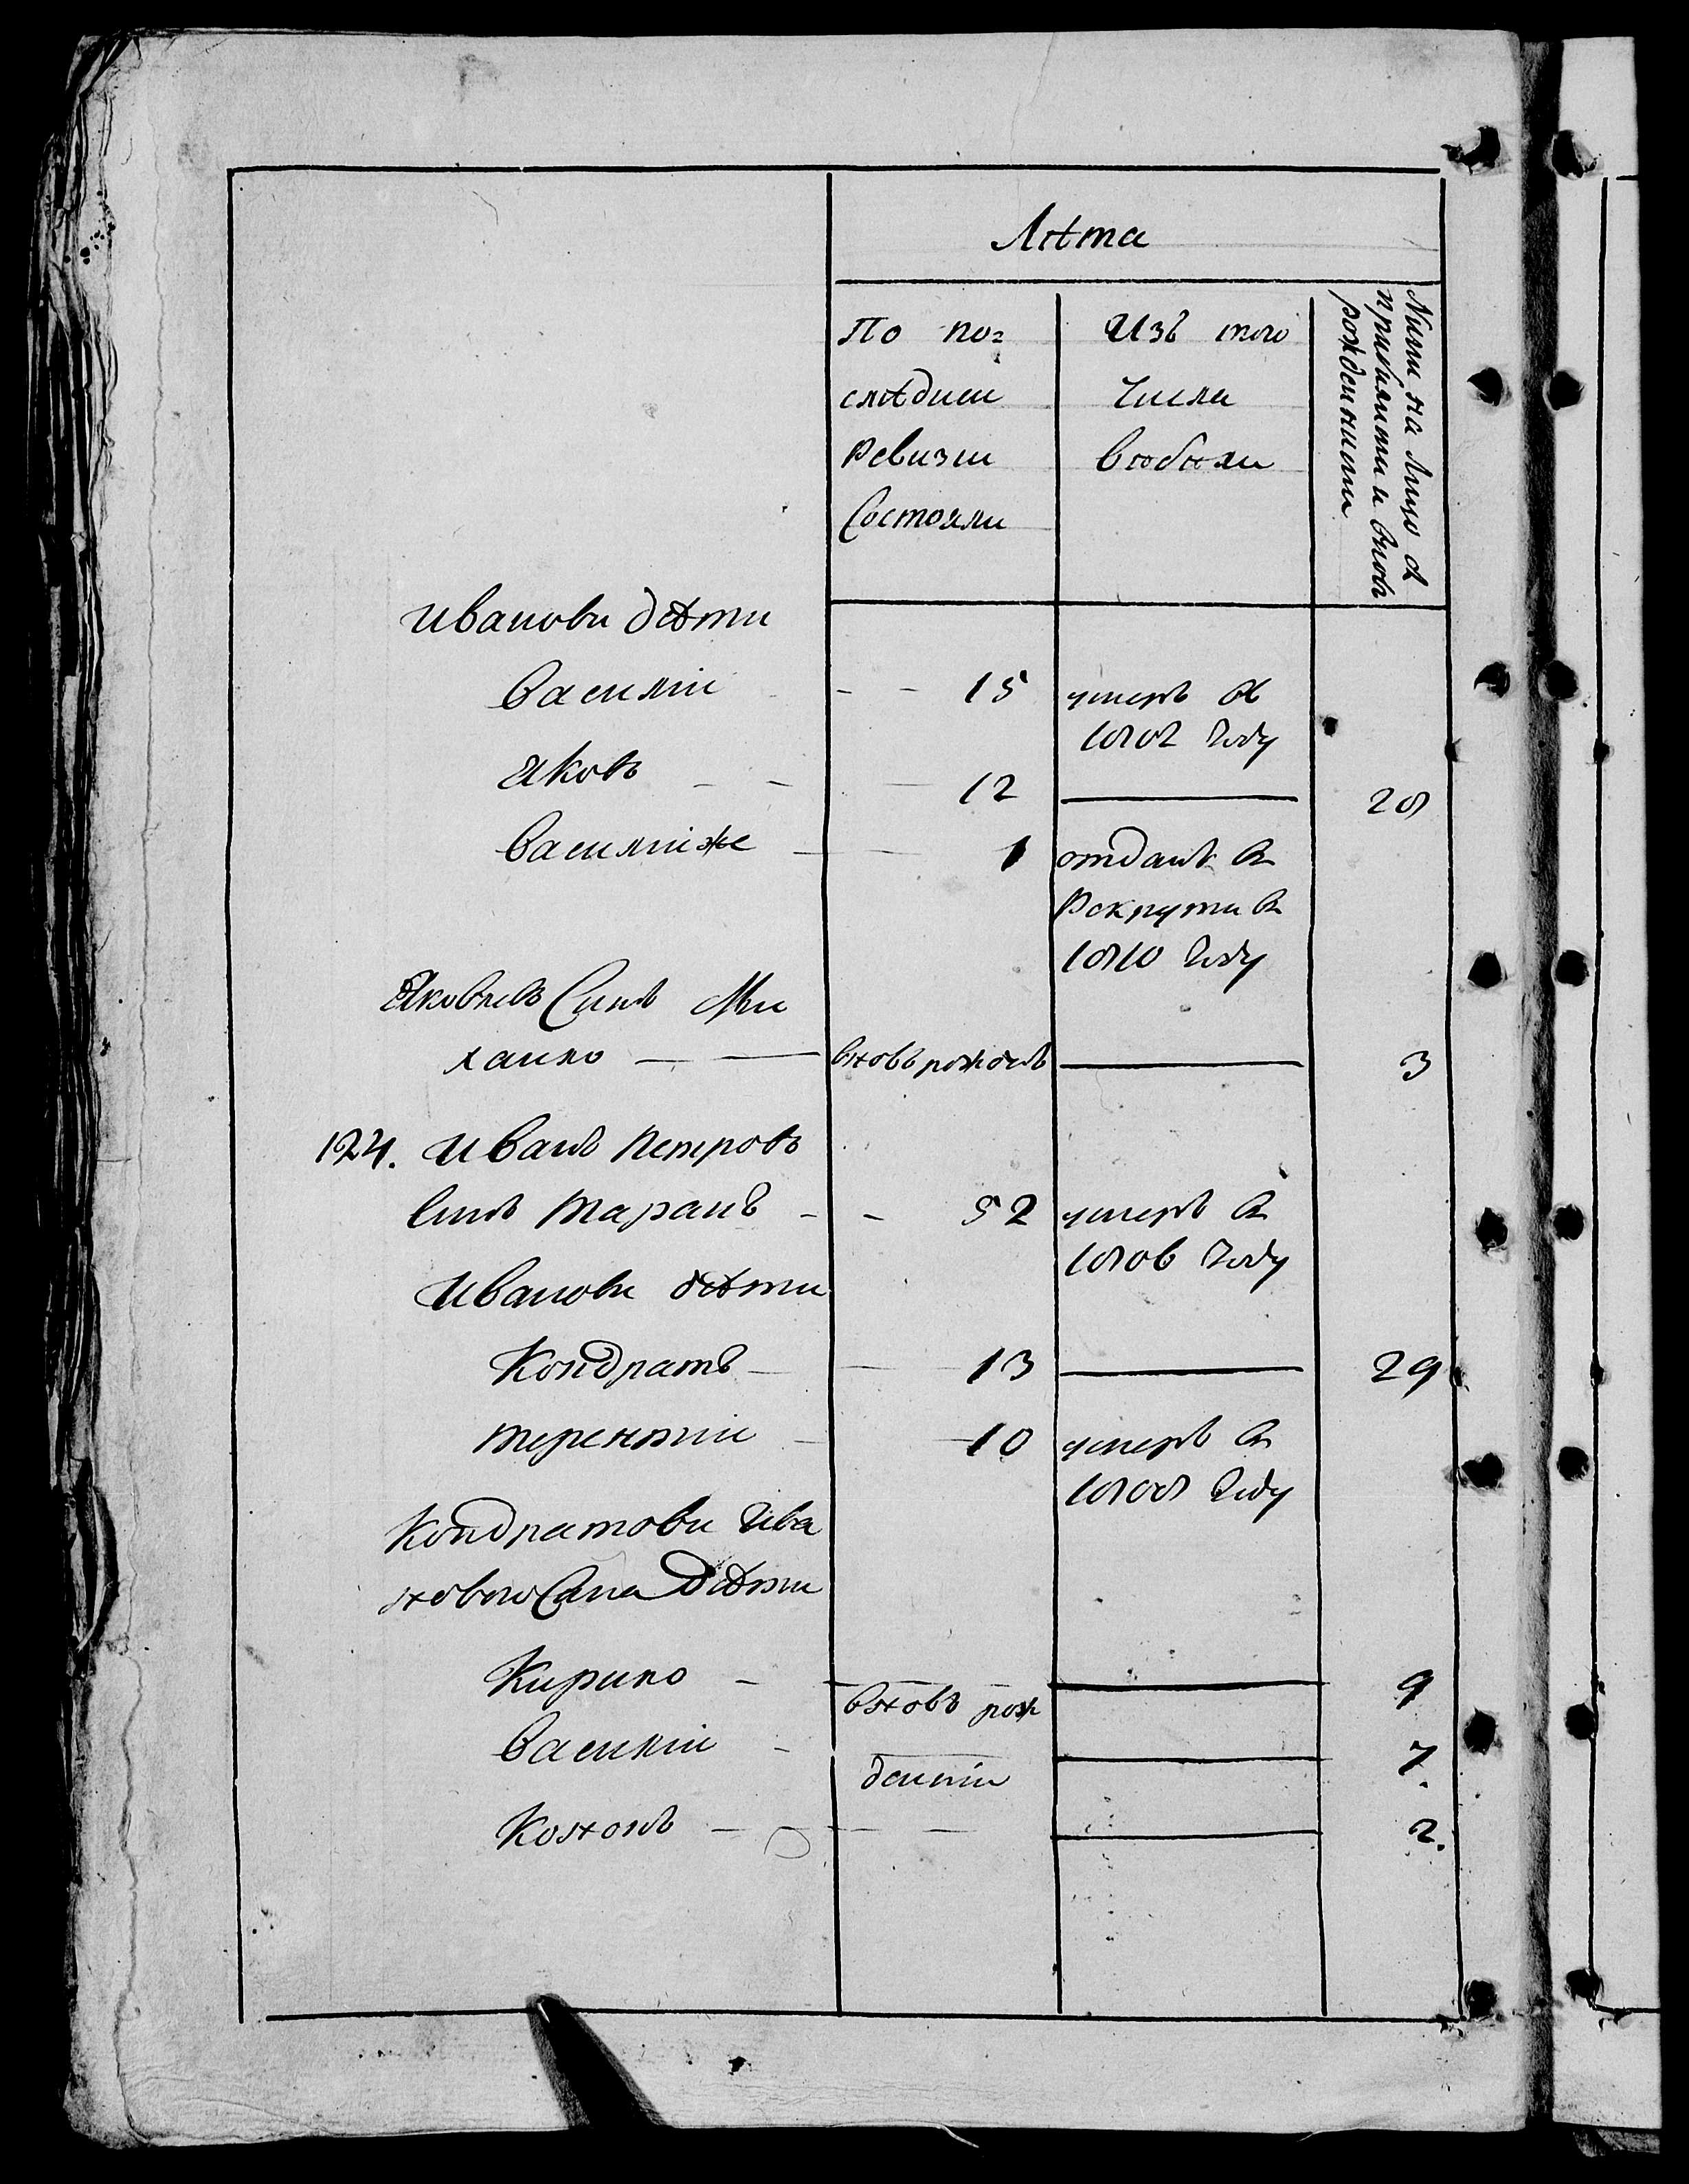 Лѣта
По по=
слѣднеи
Ревизiи
Состояли
Изъ того
Числа
выбыли
Нынѣ на лицо съ
прибылыми и вновь
рожденными
Ивановы дѣти
Василiи - - 15 умеръ въ
1802 году
Яковъ - - 12 28
Василiиже - 1 отданъ въ
Рекруты въ
1810 году
Яковлевъ Сынъ Ми
хаило вновь рожденъ 3
124. Иванъ Петровъ
Сынъ Таранъ - - 52 умеръ въ
1806 году
Ивановы дѣти
Кондратъ - 13 29
Терентiи - 10 умеръ въ
1808 году
Кондратовы Ива
новаго Сына дѣти
Кирило - 9
вновь рож
Василiи - 7.
денiи
Кононъ - 2.